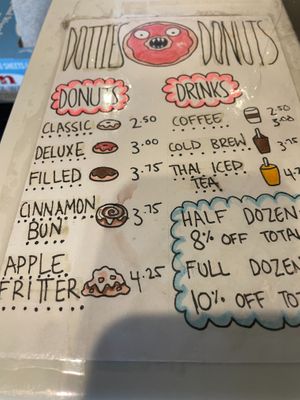 DOTTIE DONUTS
DONUTS
CLASSIC 2.50
DELUXE 3.00
FILLED 3.75
CINNAMON
BUN 3.75
APPLE
FRITTER 4.25
DRINKS
COFFEE 2.50
3.00
COLD BREW 3.75
THAI ICED
TEA
HALF DOZEN
8% OFF TOTAL
FULL DOZEN
10% OFF TOT